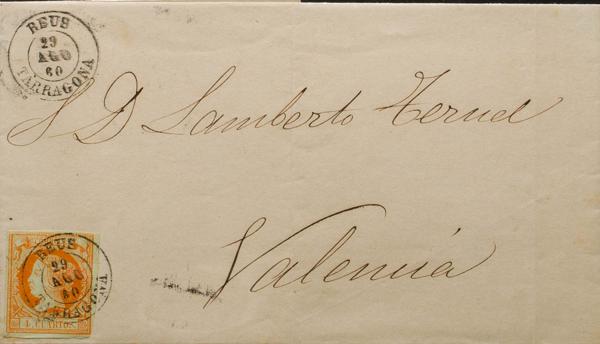 REUS
29
AGO
60
TARRAGONA
S D Lamberto Teruel
Valencia
REUS
29
AGO
60
TARRAGONA
4 CUARTOS.